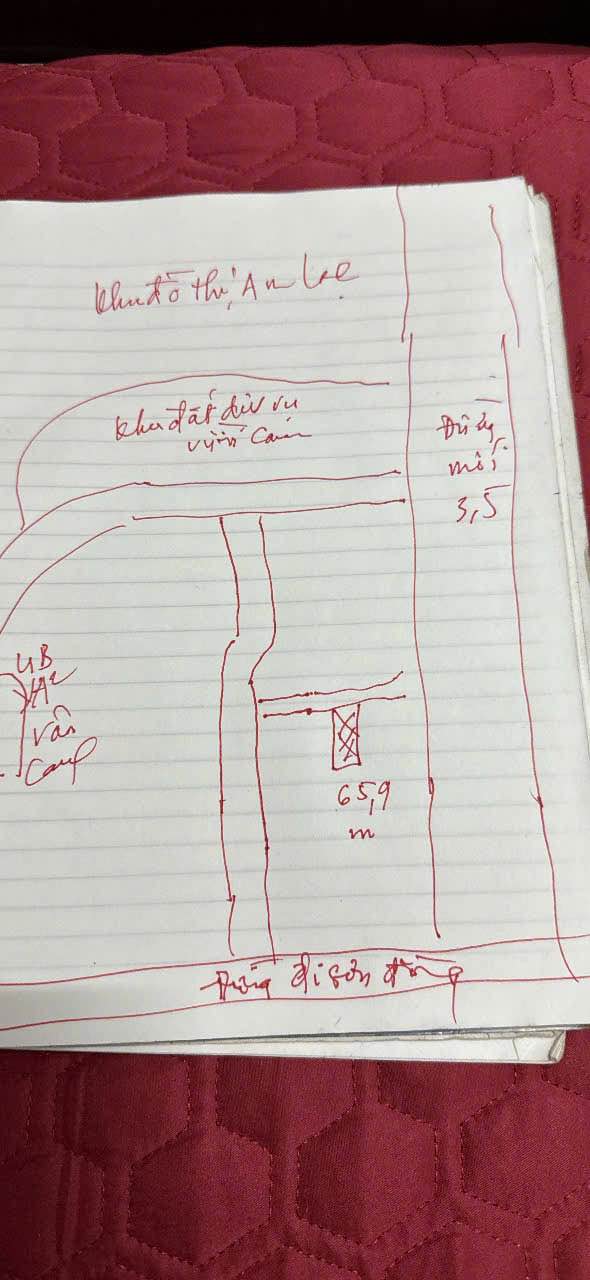 khu đô thị An Lạc
khu đất dịch vụ
Vân Canh
Đường
mới
3,5
UB
Vân
Canh
65,9
m
Đường đi sơn đồng